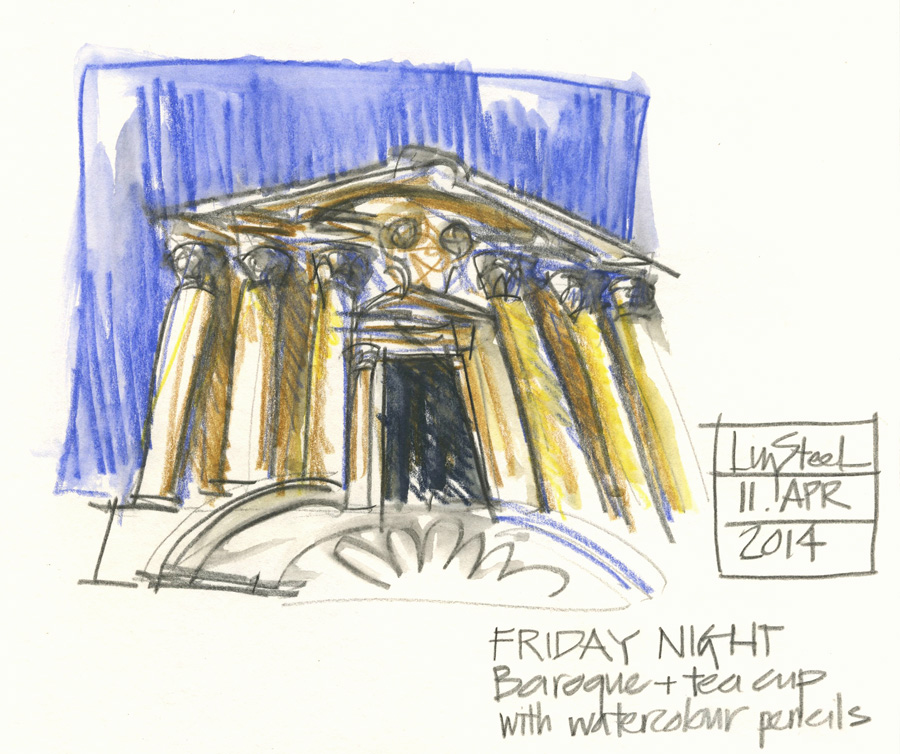 Liz Steel
11. APR
2014
FRIDAY NIGHT
Baroque + tea cup
with watercolour pencils